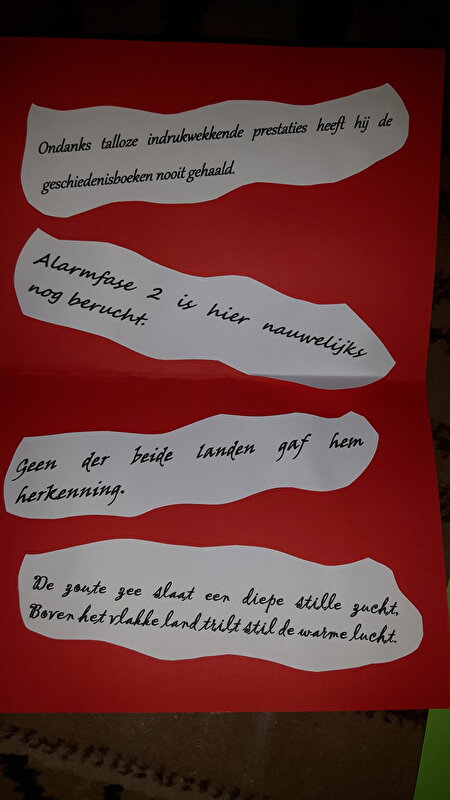 Ondanks talloze indrukwekkende prestaties heeft hij de
geschiedenisboeken nooit gehaald.
Alarmfase 2 is hier nauwelijks
nog berucht.
Geen der beide landen gaf hem
herkenning.
De zoute zee slaat een diepe stille zucht,
Boven het vlakke land trilt stil de warme lucht.